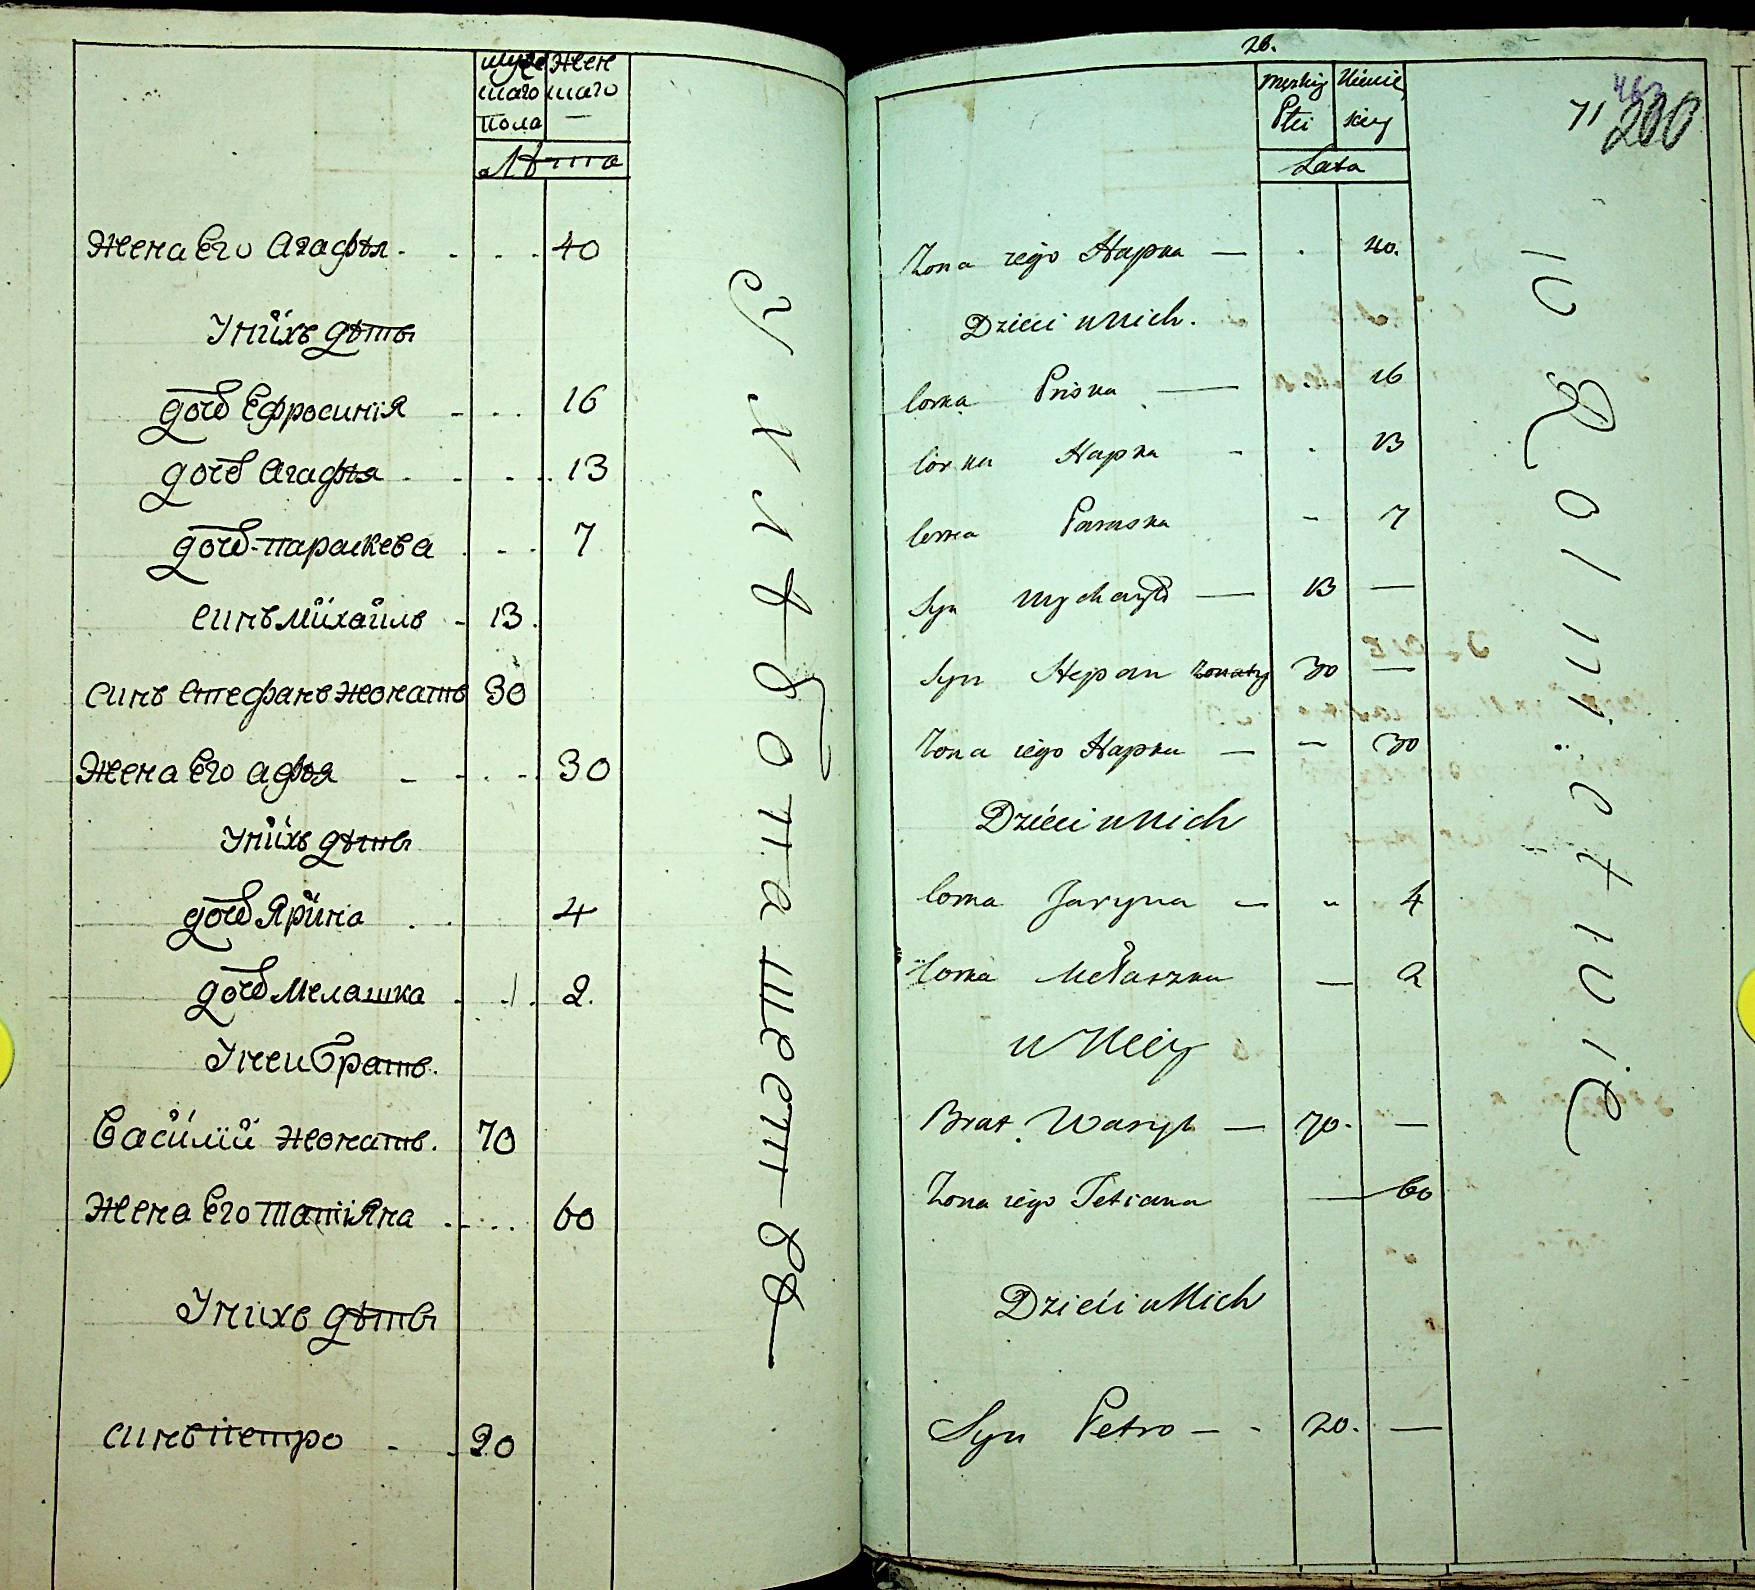 мужескаго
пола
Женскаго
Лѣта
Жена Его Агафѣя 40
У ныхъ дѣты
дочь Ефросинія 16
дочь Агафѣя 13
дочь параскева 7
сынъ Михаилъ 13
синъ стефанъ жонатъ 30
Жена Его афѣя 30
У ныхъ дѣты
дочь Ярина 4
дочь Мелашка 2
У неи братъ
Василій жонатъ 70
Жена Его Таттіяна 60
У нихъ дѣты
синъ петро 20
въ хлѣбопашествѣ
26.
Męzkiy Płci
Zienskiey
Lata
71
200
Zona iego Hapka — 40.
Dzieci u Nich.
Corka Priska — 16
Corka Hapka - 13
Corka Paraska - 7
Syn Mychayło — 13 —
Syn Stepan żonaty 30 —
Zona iego Hapka — 30
Dzieci u Nich
Corka Jaryna — 4
Corka Mełaszka — 2
u Niey
Brat Wasyl — 70. —
Zona iego Tetiana — 60
Dzieci u Nich
Syn Petro — 20. —
w Rolnictwie